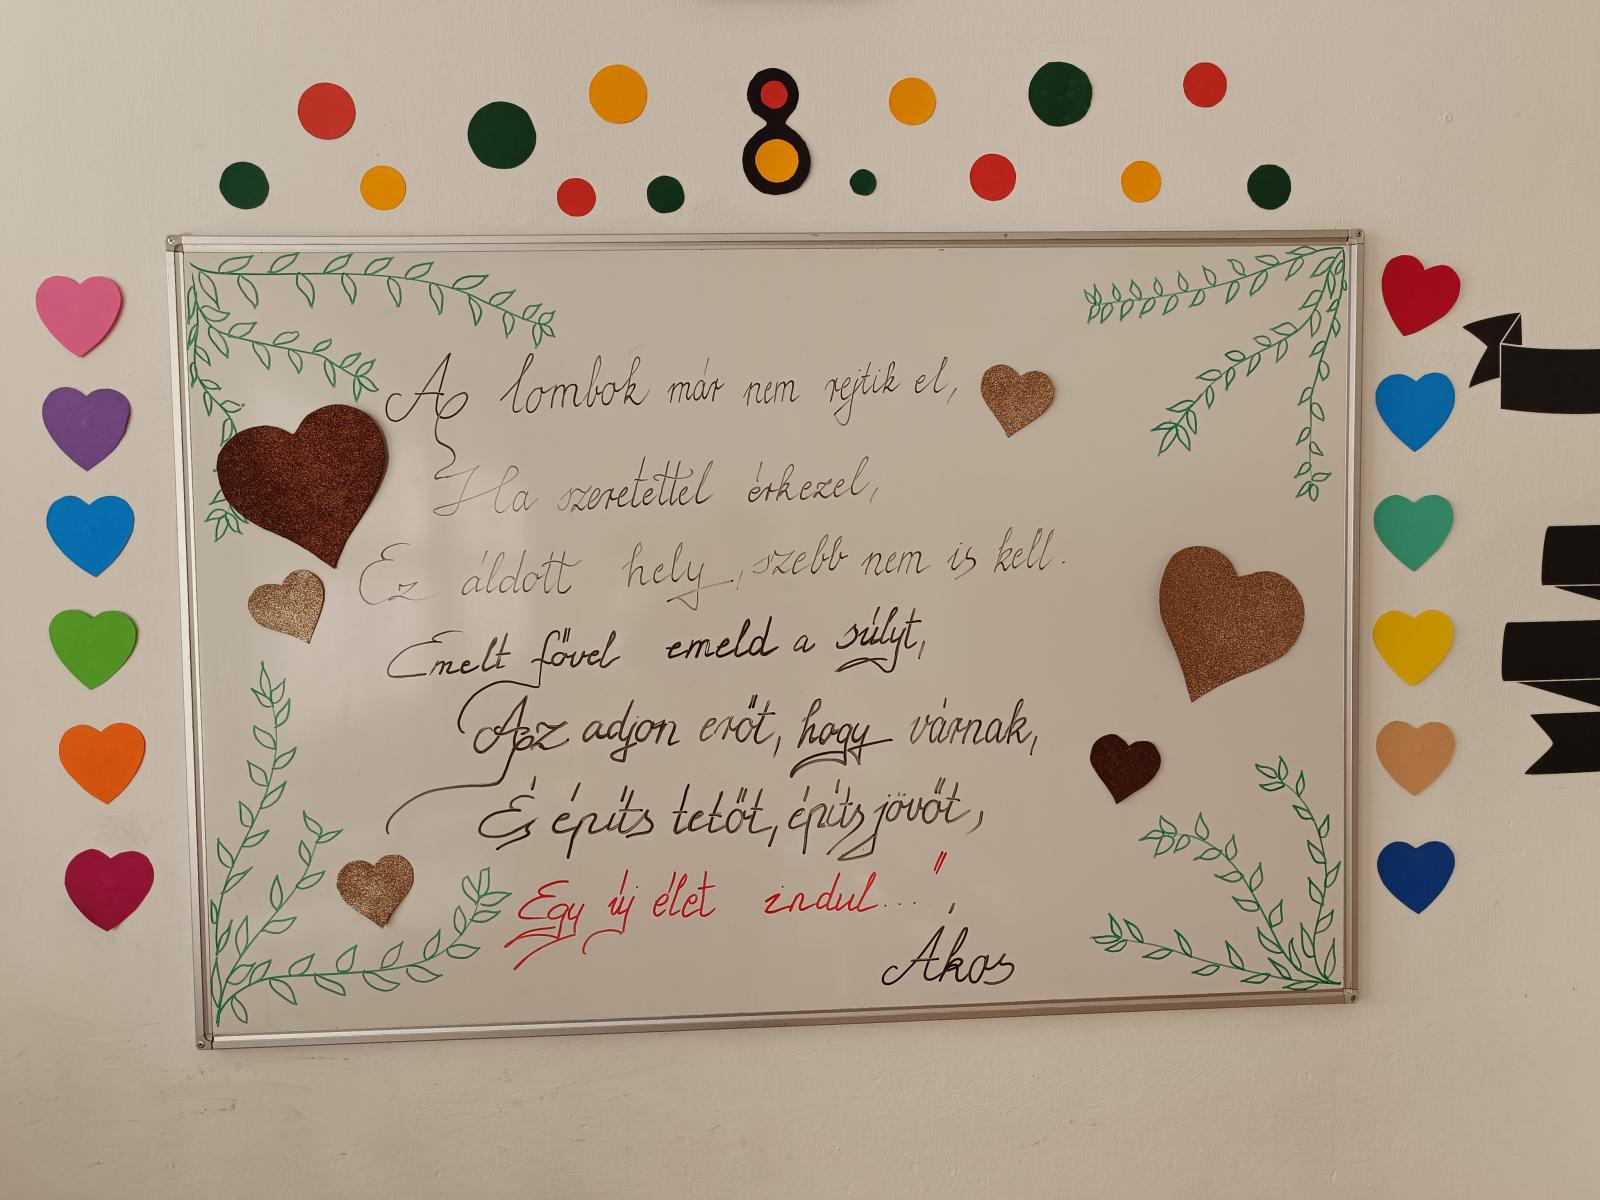 8
A lombok már nem rejtik el,
Ha szeretettel érkezel,
Ez áldott hely, szebb nem is kell.
Emelt fővel emeld a súlyt,
Az adjon erőt, hogy várnak,
És építs tetőt, építs jövőt,
Egy új élet indul..."
Ákos